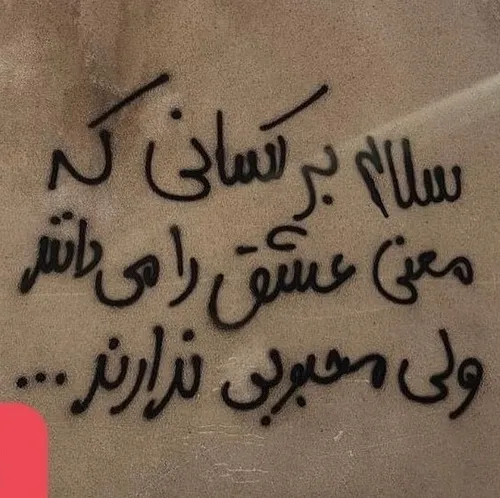 سلام بر کسانی که
معنی عشق را می دانند
ولی محبوبی ندارند...